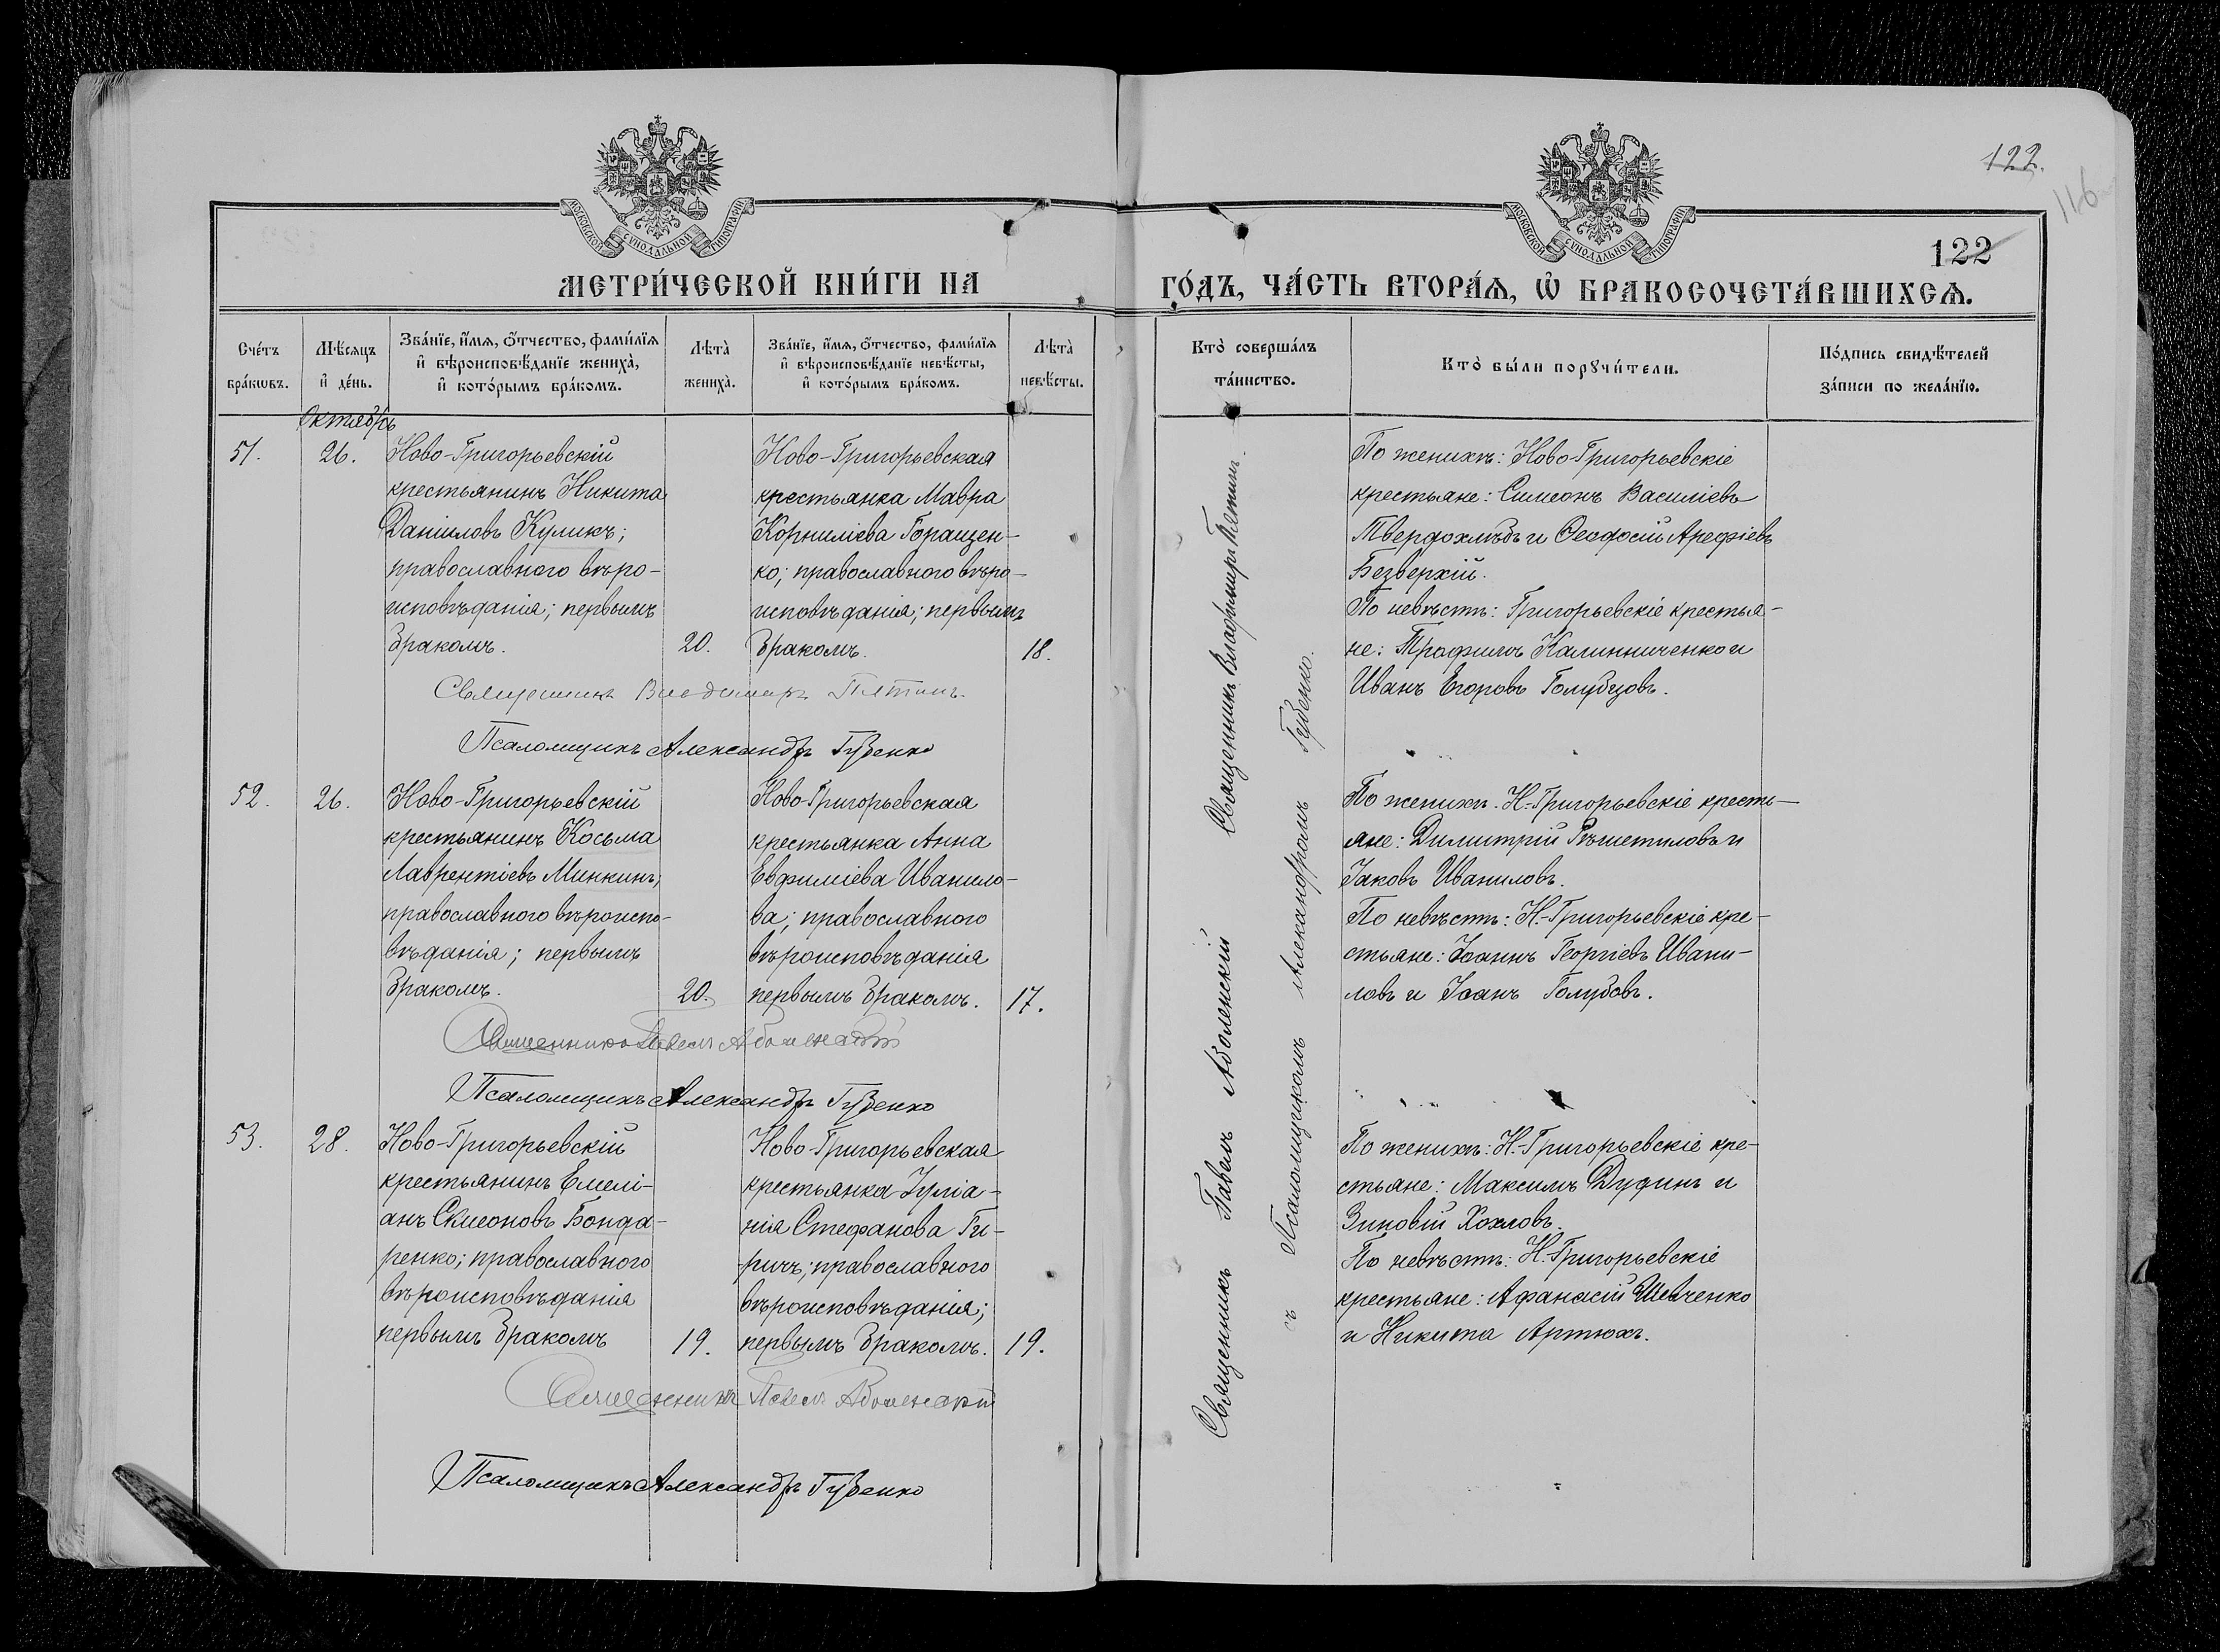 122.
116
122
МОСКОВСКОЙ СѴНОДАЛЬНОЙ ТИПОГРАФІИ
МОСКОВСКОЙ СѴНОДАЛЬНОЙ ТИПОГРАФІИ
МЕТРИ́ЧЕСКОЙ КНИ́ГИ НА
ГО́ДЪ, ЧА́СТЬ ВТОРА́Ѧ, Ѽ БРАКОСОЧЕТА́ВШИХСѦ.
Сче́тъ
бра́кѡвъ.
Мѣ́сяцъ
и҆ де́нь.
Зва́нїе, и҆́мѧ, ѻ҆́тчество, фами́лїѧ
и҆ вѣроисповѣ́данїе жениха̀,
и҆ кото́рымъ бра́комъ.
Лѣта̀
жениха̀.
Зва́нїе, и҆́мѧ, ѻ҆́тчество, фами́лїѧ
и҆ вѣроисповѣ́данїе невѣ́сты,
и҆ кото́рымъ бра́комъ.
Лѣта̀
невѣ́сты.
Кто̀ соверша́лъ
та́инство.
Кто̀ бы́ли порꙋчи́тели.
По́дпись свидѣ́телей
за́писи по жела́нїю.
Октябрь
51.
26.
Ново-Григорьевскій
крестьянинъ Никита
Даніиловъ Куликъ;
православного вѣро-
исповѣданія; первымъ
бракомъ.
20.
Ново-Григорьевская
крестьянка Мавра
Корниліева Геращен-
ко; православного вѣро-
исповѣданія; первымъ
бракомъ.
18.
Священникъ Владимиръ Пятинъ.
Псаломщикъ Александръ Губенко
По женихѣ: Ново-Григорьевскіе
крестьяне: Симеонъ Василіевъ
Твердохлѣбъ и Ѳеодосій Арефіевъ
Безверхій.
По невѣстѣ: Григорьевскіе крестья-
не: Трофимъ Калинниченко и
Иванъ Егоровъ Голубцовъ.
52.
26.
Ново-Григорьевскій
крестьянинъ Косьма
Лаврентіевъ Минкинъ;
православного вѣроиспо-
вѣданія; первымъ
бракомъ.
20.
Ново-Григорьевская
крестьянка Анна
Евфиміева Иванило-
ва; православного
вѣроисповѣданія
первымъ бракомъ.
17.
Священникъ Павелъ Аболенскій
Псаломщикъ Александръ Губенко
По женихѣ: Н.-Григорьевскіе кресть-
яне: Димитрій Рѣшетиловъ и
Іаковъ Иваниловъ.
По невѣстѣ: Н.-Григорьевскіе кре-
стьяне: Іоаннъ Георгіевъ Ивани-
ловъ и Іоанъ Голубовъ.
53.
28.
Ново-Григорьевскій
крестьянинъ Емелі-
анъ Симеоновъ Бонда-
ренко; православного
вѣроисповѣданія
первымъ бракомъ
19.
Ново-Григорьевская
крестьянка Іуліа-
нія Стефанова Ги-
ричъ; православного
вѣроисповѣданія;
первымъ бракомъ.
19.
Священникъ Павелъ Аболенскій
Псаломщикъ Александръ Губенко
По женихѣ: Н.-Григорьевскіе кре-
стьяне: Максимъ Дудинъ и
Зиновій Хохловъ.
По невѣстѣ: Н.-Григорьевскіе
крестьяне: Афанасій Шевченко
и Никита Артюхъ.
Священникъ Павелъ Аболенскій Священникъ Владимиръ Пятинъ.
съ Псаломщикомъ Александромъ Губенко.